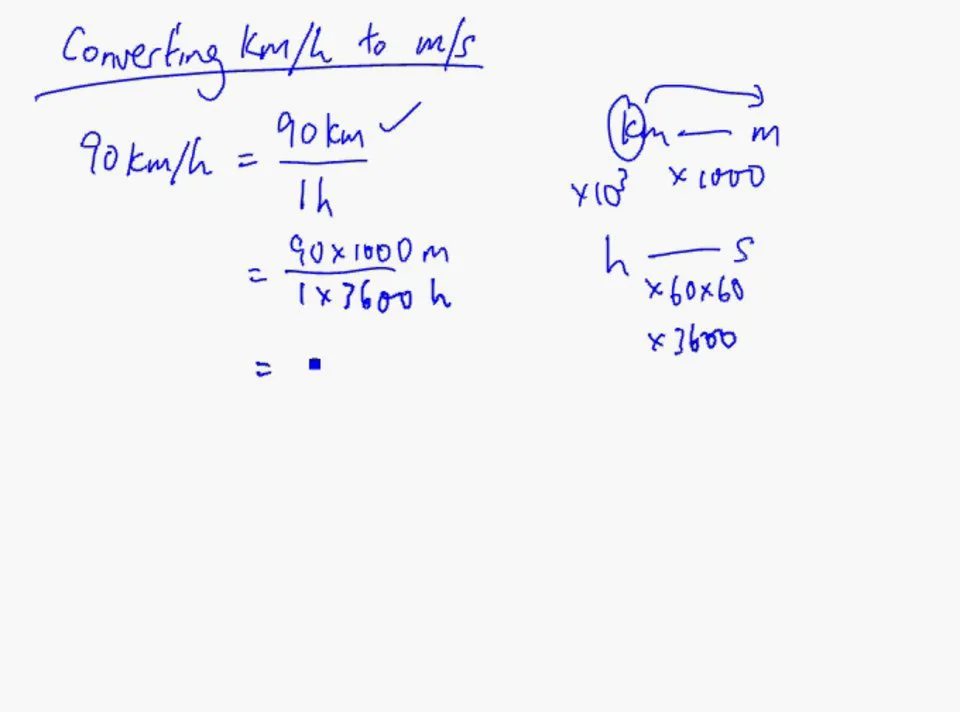 Converting km/h to m/s
90 km/h = 90 km ✓
1 h
= 90 × 1000 m
1 × 3600 h
=
km — m
×10³ × 1000
h — s
× 60 × 60
× 3600